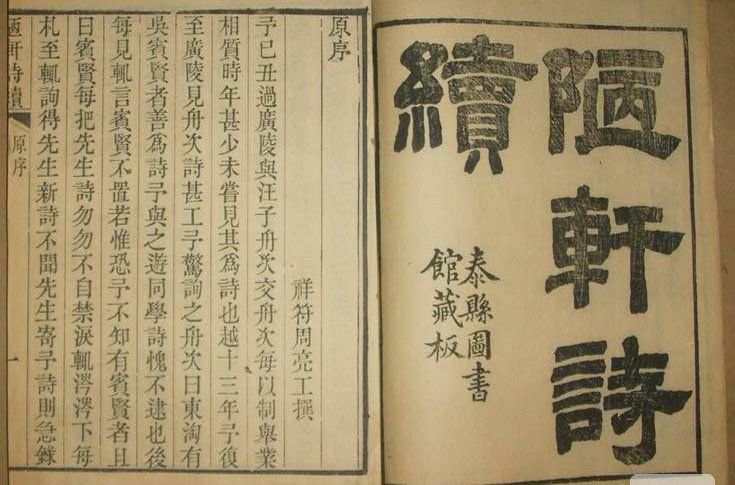 陋軒詩
續
泰縣圖書
館藏板
原序
祥符周亮工撰
予己丑過廣陵與汪子舟次交舟次每以制舉業
相質時年甚少未嘗見其爲詩也越十三年予復
至廣陵見舟次詩甚工予驚詢之舟次曰東淘有
吳賓賢者善爲詩予與之遊同學詩愧不逮也後
每見輒言賓賢不置若惟恐予不知有賓賢者且
曰賓賢每把先生詩勿勿不自禁淚輒涔涔下每
札至輒詢得先生新詩不聞先生寄予詩則急錄
陋軒詩續
原序
一